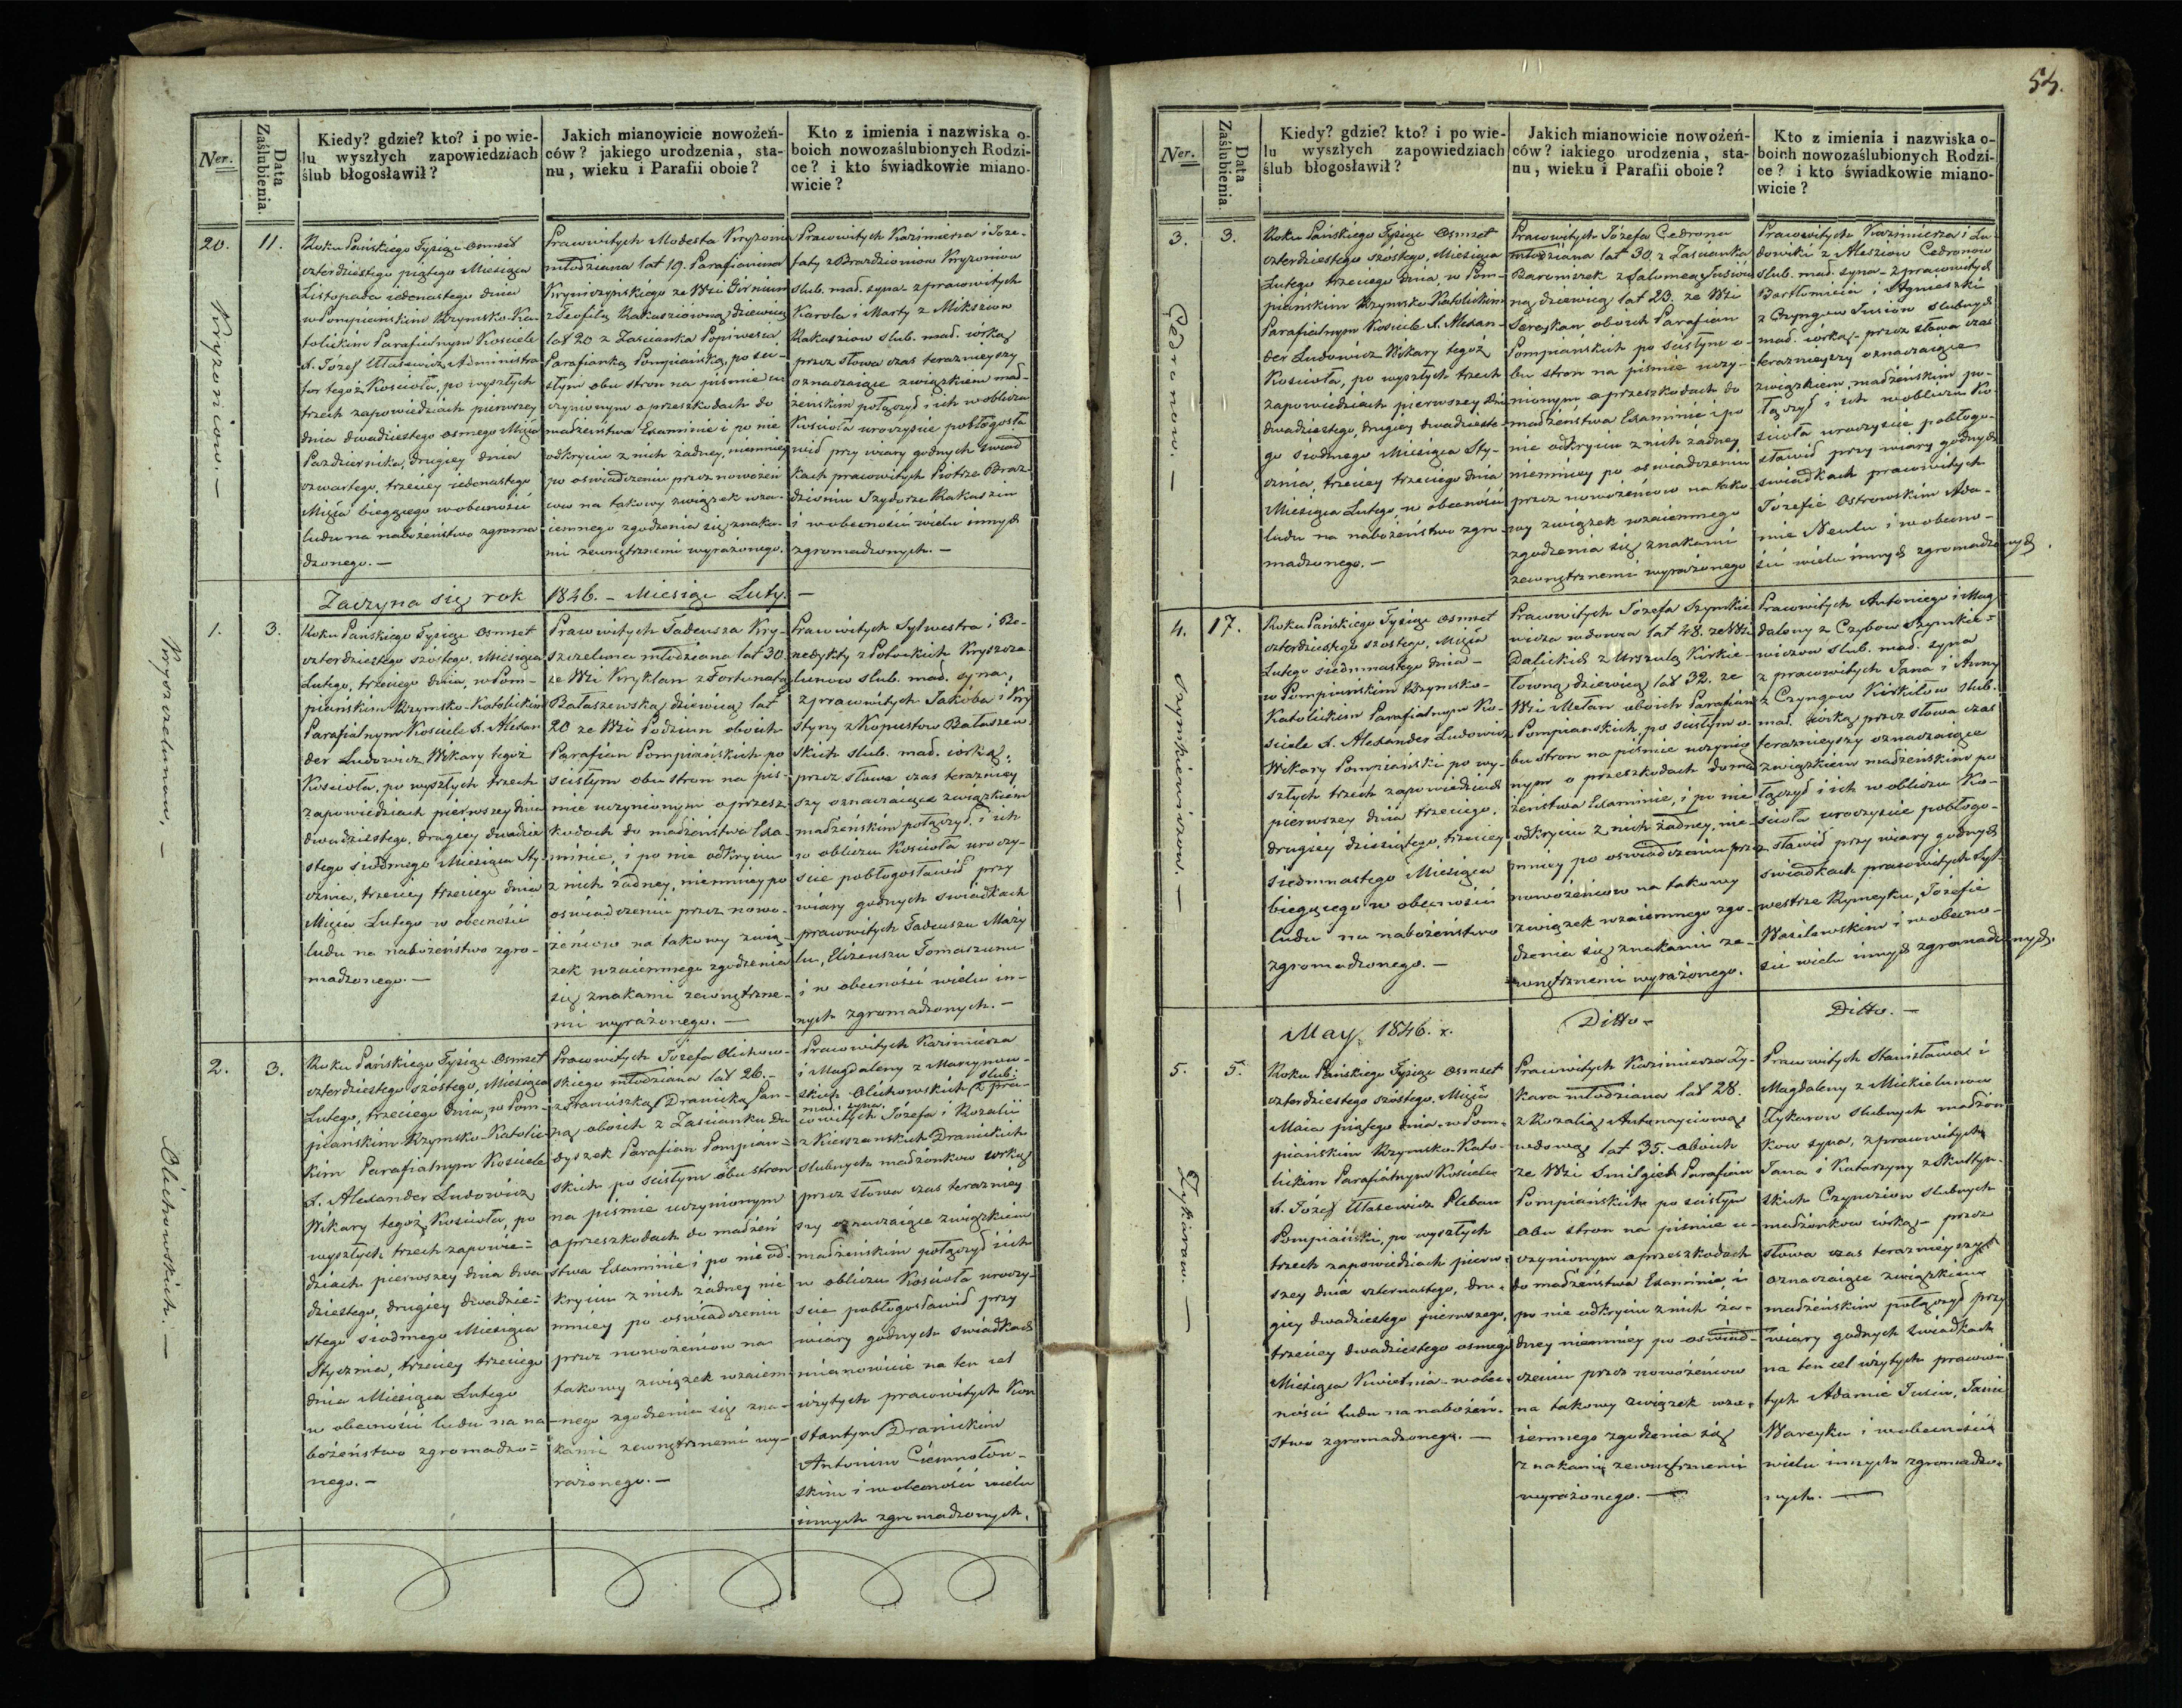 Ner.
Data
Zaślubienia.
Kiedy? gdzie? kto? i po wie-
lu wyszłych zapowiedziach
ślub błogosławił?
Jakich mianowicie nowożeń-
ców? jakiego urodzenia, sta-
nu, wieku i Parafii oboie?
Kto z imienia i nazwiska o-
boich nowozaślubionych Rodzi-
ce? i kto świadkowie miano-
wicie?
20.
11.
Kryżoniow. —
Roku Pańskiego Tysiąc Osmset
czterdziestego piątego Miesiąca
Listopada iedenastego dnia
w Pompiańskim Rzymsko-Ka-
tolickim Parafialnym Kosciele
X. Józef Utasewicz Administra
tor tegoż Kościoła, po wyszłych
trzech zapowiedziach pierwszey
dnia dwadziestego osmego Miąca
Pazdziernika, drugiey dnia
czwartego, trzeciey iedenastego
Miąca bieżącego w obecności
ludu na nabożeństwo zgroma
dzonego. —
Pracowitych Modesta Kryżonia
młodziana lat 19. Parafianina
Krynyczyńskiego ze Wsi
z Teofilą Rakasziowną dziewicą
lat 20 z Zascianka Popiwesia
Parafianką Pompiańską, po sci-
słym obu stron na piśmie u
czynionym o przeszkodach do
małżeństwa Examinie i po nie
odkryciu z nich żadney, niemniey
po oświadczeniu przez nowożeń
cow na takowy związek wza-
iemnego zgodzenia się znaka-
mi zewnętrznemi wyrażonego.
Pracowitych Kazimierza i Joze-
faty z Brazdzioniow Kryżoniow
slub. mał. syna- z pracowitych
Karola i Marty z Miksziow
Rakasziow slub. mał. córką
przez słowa czas teraznieyszy
oznaczaiące związkiem mał-
żeńskim połączył i ich w obliczu
Kościoła uroczyscie pobłogosła
wił przy wiary godnych świad
kach pracowitych Piotrze Braz-
dzioniu Szydorze Rakaszin
i w obecności wielu innych
zgromadzonych. —
Zaczyna się rok 1846. — Miesiąc Luty. —
1.
3.
Kryszczelunow. —
Roku Pańskiego Tysiąc Osmset
czterdziestego szóstego, Miesiąca
Lutego, trzeciego dnia, w Pom-
piańskim Rzymsko-Katolickim
Parafialnym Kosciele X. Alexan
der Ludowicz, Wikary tegoż
Kościoła, po wyszłych trzech
zapowiedziach pierwszey dnia
dwadziestego, drugiey dwadzie
stego siodmego Miesiąca Sty-
cznia, trzeciey trzeciego dnia
Miąca Lutego w obecności
ludu na nabożeństwo zgro-
madzonego. —
Pracowitych Tadeusza Kry-
szczeluna młodziana lat 30.
ze Wsi Kryklan z Fortunatą
Bałaszewską dziewicą lat
20 ze Wsi Podziun oboich
Parafian Pompiańskich po
scisłym obu stron na piś-
mie uczynionym o przesz-
kodach do małżeństwa Exa-
minie, i po nie odkryciu
z nich żadney, niemniey po
oświadczeniu przez nowo-
żeńcow na takowy zwią-
zek wzaiemnego zgodzenia
się znakami zewnętrzne-
mi wyrażonego. —
Pracowitych Sylwestra i Be-
nedykty z Połockich Kryszcze
lunow slub. mał. syna,
z pracowitych Jakóba i Kry
styny z Kopustow Bałaszew-
skich slub. mał. córką,
przez słowa czas terazniey
szy oznaczaiące związkiem
małżeńskim połączył, i ich
w obliczu Kościoła uroczy-
scie pobłogosławił przy
wiary godnych świadkach
pracowitych Tadeuszu Maży
lu, Elizeuszu Tomaszunu
i w obecności wielu in-
nych zgromadzonych. —
2.
3.
Olichowskich. —
Roku Pańskiego Tysiąc Osmset
czterdziestego szóstego, Miesiąca
Lutego, trzeciego dnia, w Pom-
piańskim Rzymsko-Katolic
kim Parafialnym Kosciele
X. Alexander Ludowicz
Wikary tegoż Kościoła, po
wyszłych trzech zapowie=
dziach pierwszey dnia dwa
dziestego, drugiey dwadzie=
stego siodmego Miesiąca
Stycznia, trzeciey trzeciego
dnia Miesiąca Lutego
w obecności ludu na na-
bożeństwo zgromadzo=
nego. —
Pracowitych Józefa Olichow-
skiego młodziana lat 26. —
z Franciszką Dranicką Pan-
ną oboich z Zascianku Du
dyszek Parafian Pompian-
skich po scisłym obu stron
na piśmie uczynionym
o przeszkodach do małżeń
stwa Examinie i po nie od-
kryciu z nich żadney nie
mniey po oświadczeniu
przez nowożeńcow na
takowy związek wzaiem
nego zgodzenia się zna-
kami zewnętrznemi wy-
rażonego. —
Pracowitych Kazimierza
i Magdaleny z Marcynow-
skich Olichowskich slub:
mał. syna, z pra-
cowitych Józefa i Rozalii
z Kierszanskich Dranickich
slubnych małżonkow córką
przez słowa czas terazniey
szy oznaczaiące związkiem
małżeńskim połączył i ich
w obliczu Kościoła uroczy-
scie pobłogosławił przy
wiary godnych świadkach
mianowicie na ten cel
użytych pracowitych Kon
stantym Dranickim
Antonim Ciemnołon-
skim i w obecności wielu
innych zgromadzonych.
54.
Ner.
Data
Zaślubienia.
Kiedy? gdzie? kto? i po wie-
lu wyszłych zapowiedziach
ślub błogosławił?
Jakich mianowicie nowożeń-
ców? iakiego urodzenia, sta-
nu, wieku i Parafii oboie?
Kto z imienia i nazwiska o-
boich nowozaślubionych Rodzi-
ce? i kto świadkowie miano-
wicie?
3.
3.
Cedronow. —
Roku Pańskiego Tysiąc Osmset
czterdziestego szóstego, Miesiąca
Lutego trzeciego dnia, w Pom-
piańskim Rzymsko-Katolickim
Parafialnym Kosciele X. Alexan-
der Ludowicz Wikary tegoż
Kościoła, po wyszłych trzech
zapowiedziach pierwszey dnia
dwadziestego, drugiey dwadzieste-
go siodmego Miesiąca Sty-
cznia, trzeciey trzeciego dnia
Miesiąca Lutego, w obecności
ludu na nabożeństwo zgro-
madzonego. —
Pracowitych Józefa Cedrona
młodziana lat 30. z Zascianka
Baroniszek z Salomeą Jusiow
ną dziewicą lat 23. ze Wsi
Sereykan oboich Parafian
Pompiańskich po scisłym o-
bu stron na piśmie uczy-
nionym o przeszkodach do
małżeństwa Examinie i po
nie odkryciu z nich żadney
niemniey po oświadczeniu
przez nowożeńcow na tako
wy związek wzaiemnego
zgodzenia się znakami
zewnętrznemi wyrażonego
Pracowitych Kazimierza i Lu-
dowiki z Alesziow Cedronow
slub. mał. syna- z pracowitych
Bartłomieia i Agnieszki
z Czyngow Jusiow slubnych
mał. córką- przez słowa czas
teraznieyszy oznaczaiące
związkiem małżeńskim po-
łączył i ich w obliczu Ko-
scioła uroczyscie pobłogo-
sławił przy wiary godnych
świadkach pracowitych
Józefie Ostrowskim Ada-
mie Neulu i w obecno-
ści wielu innych zgromadzonych.
4.
17.
Szymkiewiczow. —
Roku Pańskiego Tysiąc Osmset
czterdziestego szostego, Miąca
Lutego siedmnastego dnia —
w Pompiańskim Rzymsko-
Katolickim Parafialnym Ko-
sciele X. Alexander Ludowicz
Wikary Pompiański po wy-
szłych trzech zapowiedziach
pierwszey dnia trzeciego,
drugiey dziesiątego, trzeciey
siedmnastego Miesiąca
bieżącego w obecności
ludu na nabożeństwo
zgromadzonego. —
Pracowitych Józefa Szymkie
wicza wdowca lat 48. ze Wsi
Dalickich z Urszulą Kirkie-
łowną dziewicą lat 32. ze
Wsi Metan oboich Parafian
Pompianskich, po scisłym o-
bu stron na piśmie uczynio
nym o przeszkodach do mał
żeństwa Examinie, i po nie
odkryciu z nich żadney, nie-
mniey po oświadczeniu przez
nowożeńcow na takowy
związek wzaiemnego zgo-
dzenia się znakami ze-
wnętrznemi wyrażonego.
Pracowitych Antoniego i Mag
daleny z Czybow Szymkie=
wiczow slub. mał. syna
z pracowitych Jana i Anny
z Czyngow Kirkiłow slub.
mał. córką przez słowa czas
teraznieyszy oznaczaiące
związkiem małżeńskim po
łączył i ich w obliczu Ko-
scioła uroczyscie pobłogo-
sławił przy wiary godnych
świadkach pracowitych Syl-
westrze Rymeyku, Józefie
Wasilewskim i w obecno-
ści wielu innych zgromadzonych.
May 1846. r.
Ditto —
Ditto. —
5.
5.
Zykarow. —
Roku Pańskiego Tysiąc Osmset
czterdziestego szóstego, Miąca
Maia piątego dnia, w Pom-
piańskim Rzymsko-Kato-
lickim Parafialnym Kosciele
X. Józef Utasewicz Pleban
Pompiański, po wyszłych
trzech zapowiedziach pierw-
szey dnia czternastego, dru-
giey dwadziestego pierwszego,
trzeciey dwadziestego osmego
Miesiąca Kwietnia- w obec-
ności ludu na nabożeń-
stwo zgromadzonego. —
Pracowitych Kazimierza Zy-
kara młodziana lat 28.
z Rozalią Antonayciową
wdową lat 35. oboich
ze Wsi Smilgiek Parafian
Pompiańskich po scisłym
obu stron na piśmie u-
czynionym o przeszkodach
do małżeństwa Examinie i
po nie odkryciu z nich ża-
dney niemniey po oświad-
czeniu przez nowożeńcow
na takowy związek wza-
iemnego zgodzenia się
znakami zewnętrznemi
wyrażonego. —
Pracowitych Stanisława i
Magdaleny z Mickielunow
Zykarow slubnych małżon
kow syna, z pracowitych
Jana i Katarzyny z Skultyn-
skich Czypoziow slubnych
małżonkow córką- przez
słowa czas teraznieyszy
oznaczaiące związkiem
małżeńskim połączył przy
wiary godnych świadkach
na ten cel użytych pracowi
tych Adamie Jusiu, Janie
Wareyku i w obecności
wielu innych zgromadzo-
nych. —